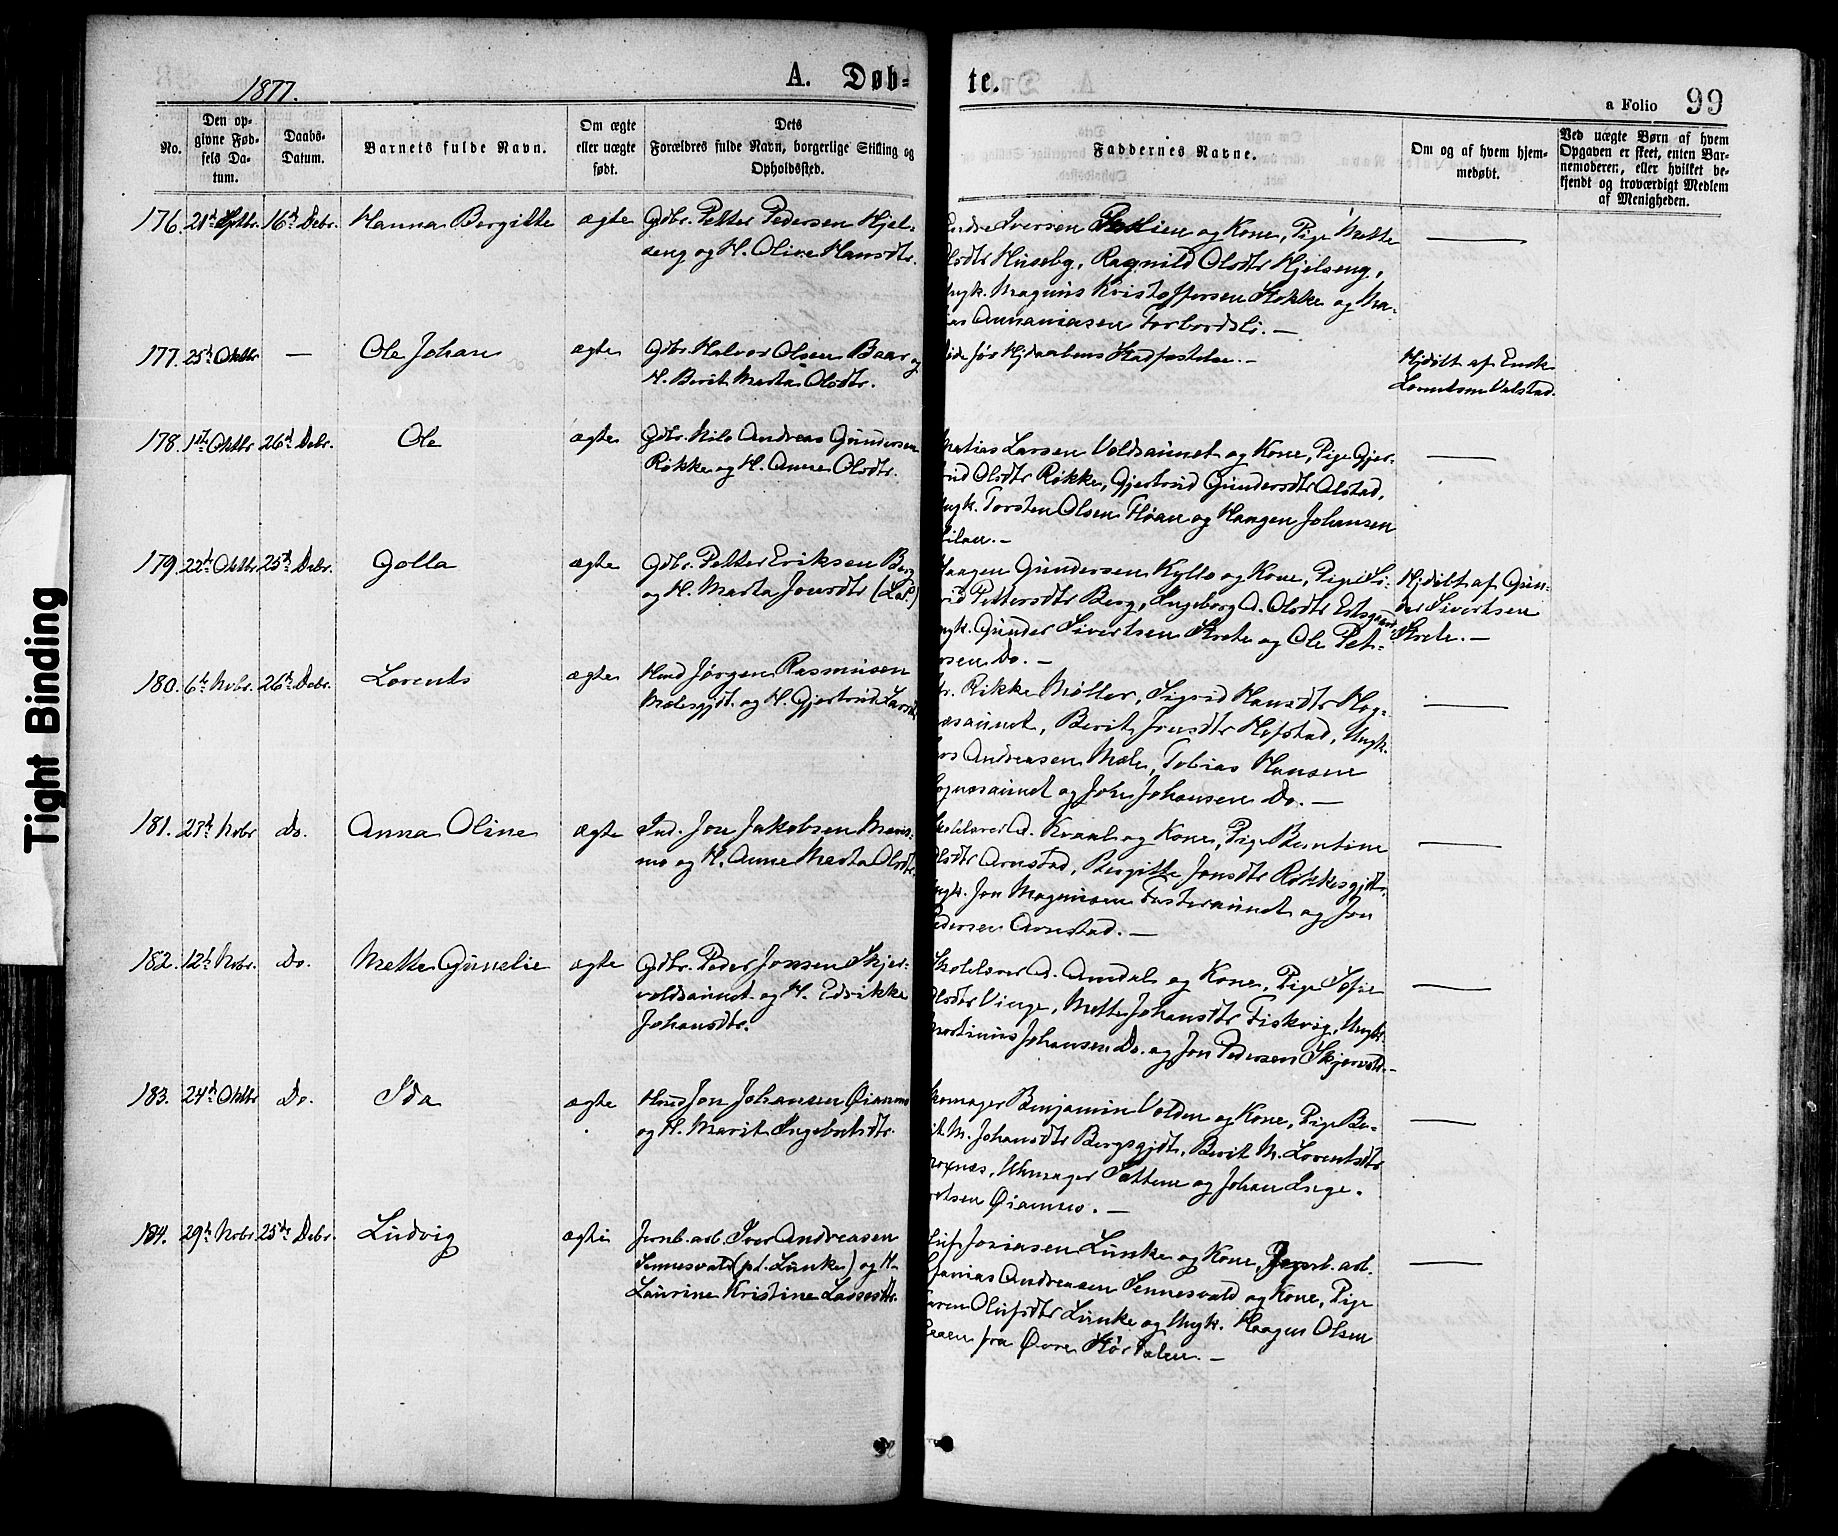 1877.
A. Døb-
te.
a Folio 99
No.
Den op-
givne Fød-
sels Da-
tum.
Daabs-
Datum.
Barnets fulde Navn.
Om ægte
eller uægte
født.
Dets
Forældres fulde Navn, borgerlige Stilling og
Opholdssted.
Faddernes Navne.
Om og af hvem hjem-
medøbt.
Ved uægte Børn af hvem
Opgaven er skeet, enten Bar-
nemoderen, eller hvilket be-
kjendt og troværdigt Medlem
af Menigheden.
176. 21de Septbr. 16de Debr. Hanna Bergitte ægte Gdbr. Petter Pedersen Hjel-
seng og H. Olive Hansdtr.
Iversen og Kone, Pige Mette
Olsdtr Huseby, Ragnild Olsdtr Hjelseng,
Ungk. Magnus Kristoffersen Stokke og Ma-
Annaniasen Forbordsli. —
177. 25de Oktbr — Ole Johan ægte Gdbr. Halvor Olsen Baar og
H. Berit Marta Olsdtr.
Døde før Hjdaabens Stadfæstelse. —
Hjdøbt af Enok
Lorentsen Valstad.
178. 1ste Oktbr 26de Debr. Ole ægte Gdbr. Nils Andreas Gundersen
Røkke og H. Anne Olsdtr.
Matias Larsen Voldsaunet og Kone, Pige Gjer-
trud Olsdtr Røkke, Gjertrud Gundersdtr Olstad,
Ungk. Torsten Olsen Fløan og Haagen Johansen
179. 22de Oktbr 25de Debr. Golla ægte Gdbr. Petter Eriksen Berg
og H. Marta Jonsdtr
Haagen Gundersen Kyllo og Kone, Pige Si-
Pettersdtr Berg, Ingeborg A. Olsdtr
Ungk. Gunder Sivertsen Skrete og Ole Pet-
ersen Do. —
Hjdøbt af Gun-
der Sivertsen
Skrete. —
180. 6te Nvbr. 26de Debr. Lorents ægte Hmd Jørgen Rasmusen
Mælesgjdt. og H. Gjertrud Larsdtr
Rikke Møller, Sigrid Hansdtr Hog-
næsaunet, Berit Jensdtr Hofstad, Ungk.
Andreasen Mæle, Tobias Hansen
Hognæsaunet og John Johansen Do. —
181. 27de Nvbr Do. Anna Oline ægte Ind. Jon Jakobsen Mæhs-
mo og H. Anne Marta Olsdtr.
Skolelærer A. Kvaal og Kone, Pige Berntine
Olsdtr Arnstad, Bergitte Jonsdtr Røkkesgjdt.
Ungk. Jon Magnusen Fosteraunet og Jon
Pedersen Arnstad. —
182. 12te Nvbr. Do. Mette Gunelie ægte Gdbr. Peder Jonsen Skjer-
voldsaunet og H. Edvikke
Johansdtr.
Skolelærer A. Amdal og Kone, Pige Sofie
Olsdtr Vinge, Mette Johansdtr Fiskvig, Ungk.
Martinus Johansen Do. og Jon Pedersen Skjervold. —
183. 24de Oktbr Do. Ida ægte Hmd Jon Johansen Øianmo
og H. Marit Ingebrtsdtr.
Skomager Benjamin Volden og Kone, Pige Be-
rit M. Johansdtr Bergsgjdt, Berit M. Lorentsdtr
Uhrmager Sættem og Johan Inge-
brtsen Øianmo. —
184. 29de Nvbr 25de Debr. Ludvig ægte Jernb. arb. Iver Andreasen
Sennesvald (pl. Lunke) og H.
Laurine Kristine Lassesdtr.
Oluf Josiasen Lunke og Kone, Jernb. arb.
Ananias Andreasen Sennesvald og Kone, Pige
Karen Olufsdtr Lunke og Ungk. Haagen Olsen
fra Øvre Stördalen. —
Tight Binding